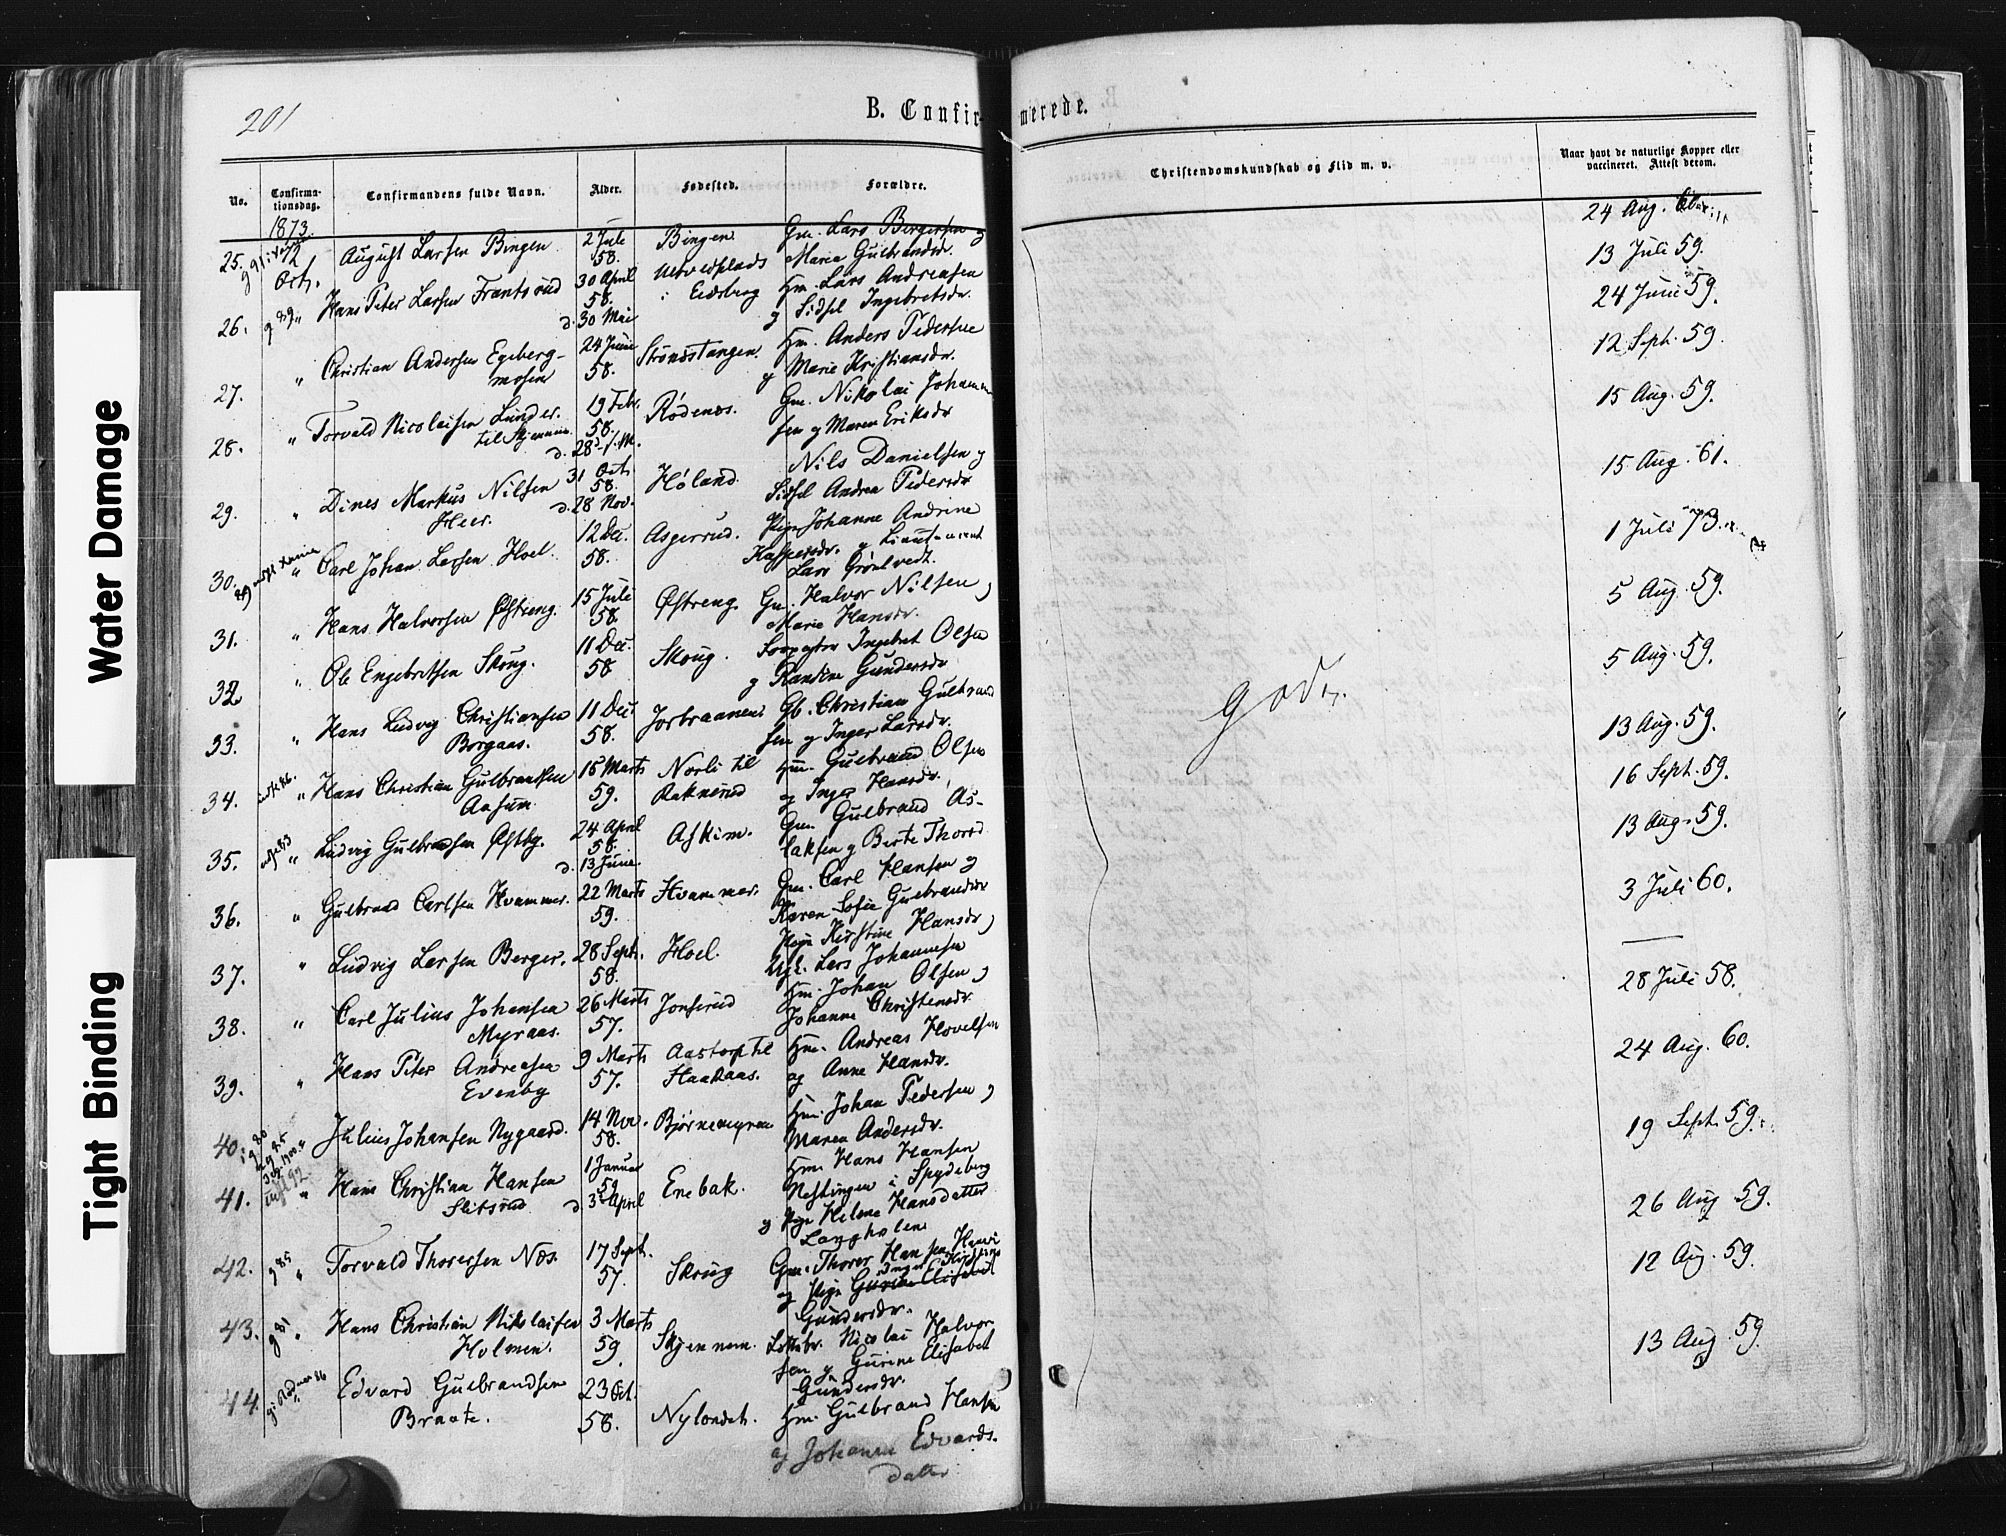 201
B. Confirmerede.
No. Confirmationsdag. Confirmandens fulde Navn. Alder. Fødested. Forældre. Christendomskundskab og Flid m. v. Naar havt de naturlige Kopper eller vaccineret. Attest derom.
1873.
25. Octr. August Larsen Bingen 2 Juli 58. Bingen Gm. Lars Bergersen og Maria Gulbrandsdr. 24 Aug.
26. g 89 " Hans Peter Larsen Frantsrud 30 April 58. d. 30 Mai i Eidsberg Hm. Lars Andreasen og Sidsel Ingebretsdr. 13 Juli 59.
27. " Christian Andersen Egebergmosen 24 Juni 58. Strønstangen. Hm. Anders Pedersen og Marie Kristiansdr. 24 Juni 59.
28. " Torvald Nicolaisen Lunder. til Skjennem 19 Febr. 58. Rødenæs. Gm. Nikolai Johannesen og Maren Eriksdr. 12 Sept. 59.
29. " Dines Markus Nilsen Heer. 31 Oct. 58. d. 28 Nov. Høland Nils Danielsen og Sidsel Andrea Pedersdr 15 Aug. 59.
30. " Carl Johan Larsen Hoel. 12 Dec. 58. Asgerrud. Pige Johanne Andrine Kaspersdr. og Lieutenant Lars Grønlvedt. 15 Aug. 61.
31. " Hans Halvorsen Østreng. 15 Juli 58. Østreng. Gm. Halvor Nilsen og Marie Hansdr. 1 Juli 73.
32 " Ole Engebretsen Skoug. 11 Dec. 58 Skoug. Ingebret Olsen og Randine Gundersdr 5 Aug. 59.
33. " Hans Ludvig Christiansen Borgaas. 11 Dec 58. Gb. Christian Gulbrandsen og Inger Larsdr. 5 Aug. 59.
34. " Hans Christian Gulbrandsen Aasum. 15 Marts 59. Norli til Raknerud Hm. Gulbrand Olsen og Inger Hansdr. 13 Aug. 59.
35. " Ludvig Gulbrandsen Østby. 24 April 58. d. 13 June. Askim. Gm. Gulbrand Aslaksen og Berte Thorsd. 16 Sept. 59.
36. " Gulbrand Carlsen Hvammer. 22 Marts 59. Hvammer. Gm. Carl Hansen og Karen Sofie Gulbrandsdr 13 Aug. 59.
37. " Ludvig Larsen Berger. 28 Sept. 58. Hoel. Pige Kirstine Hansdr og Lars Johannesen 3 Juli 60.
38. " Carl Julius Johansen Myraas. 26 Marts 57. Jonsrud Hm. Johan Olsen og Johanne Christensdr
39. " Hans Peter Andreasen Evenby 9 Marts 57. Aastorp til Haakaas. Hm. Andreas Hovelsen og Anne Hansdr. 28 Juli 58.
40. Julius Johansen Nygaard. 14 Nov. 58. Bjørnemyren Hm. Johan Pedersen og Maren Andersdr. 24 Aug. 60.
41. " Hans Christian Hansen Slitsrud 1 Januar 59 d 3 April Enebak. Hm. Hans Hansen i Spydeberg og Pige Helene Hansdatter Langholen 19 Sept. 59.
42. g 85 " Torvald Thoresen Næs. 17 Sept. 57. Skoug Gm. Thorer Hansen og Pige Gurine Elisabet Gundersdr. 26 Aug 59.
43. g 81 " Hans Christian Nikolaisen Holmen. 3 Marts 59 Skjennem. Nicolai Halvorsen og Gurine Elisabet Gundersdr. 12 Aug. 59.
44. Edvard Gulbrandsen Braate. 23 Oct. 58. Nylondet. Hm. Gulbrand Hansen og Johanne Edvardsdatter 13 Aug 59.
Godt.
Water Damage
Tight Binding